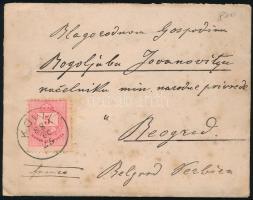 Blagorodnom Gospodinu
Bogoljubu Jovanovitju
načelniku min. narodne privrede
u
Beograd.
Belgrad Serbien
5